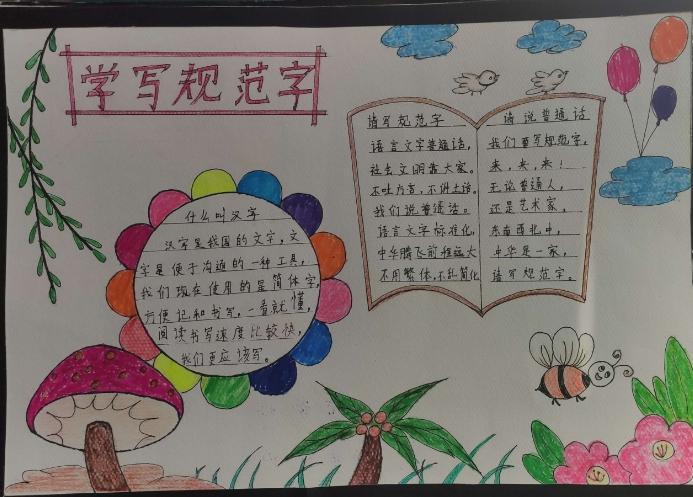 学写规范字
什么叫汉字
汉字是我国的文字，文
字是便于沟通的一种工具，
我们现在使用的是简体字，
方便记和书写，一看就懂，
阅读书写速度比较快，
我们更应该写。
请写规范字
语言文字普通话，
社会文明靠大家。
不吐方言，不讲土话。
我们说普通话。
语言文字标准化，
中华腾飞前程远大
不用繁体，不乱简化
请说普通话
我们要写规范字，
来，来，来！
无论普通人，
还是艺术家，
东南西北中，
中华是一家，
请写规范字。